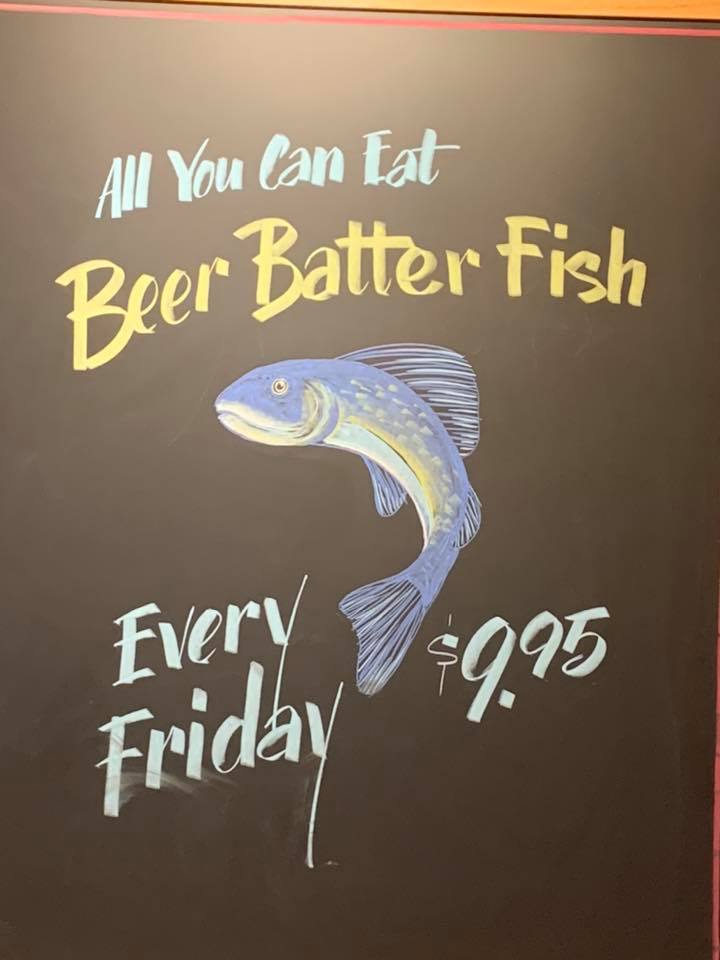 All You Can Eat
Beer Batter Fish
Every
Friday
$9.95